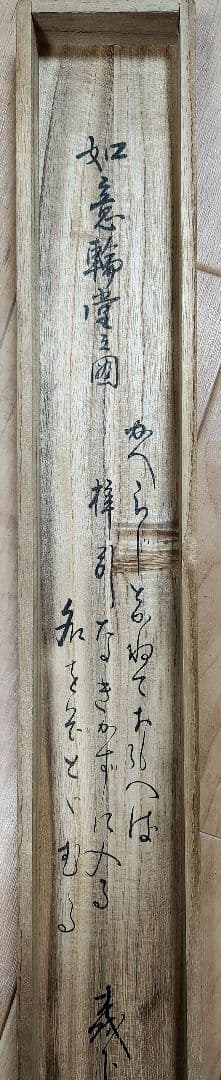 如意輪堂之図
かへらしとかねておもへは
梓弓なきかすに入る
名をそとゝむる